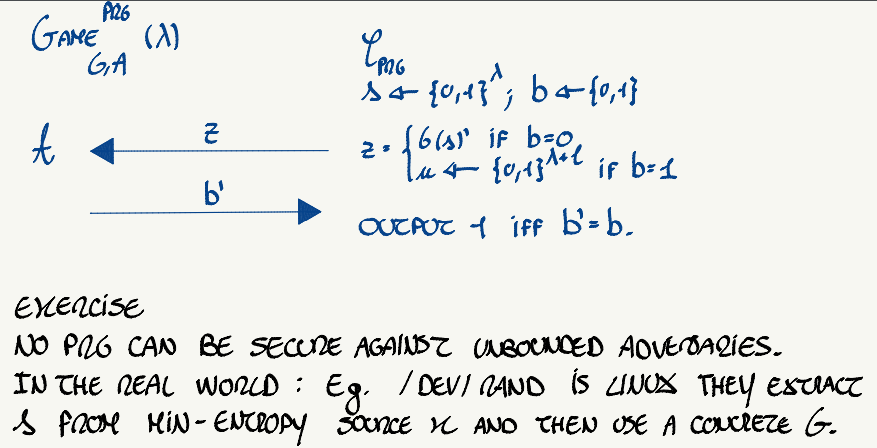 GAME^{PRG}_{G,A} (λ)
C_{PRG}
s ← {0,1}^λ; b ← {0,1}
A
z
z = { G(s) if b=0
u ← {0,1}^{λ+l} if b=1
b'
OUTPUT 1 iff b'=b.
EXERCISE
NO PRG CAN BE SECURE AGAINST UNBOUNDED ADVERSARIES.
IN THE REAL WORLD: Eg. /DEV/RAND IS LINUX THEY EXTRACT
s FROM MIN-ENTROPY SOURCE X AND THEN USE A CONCRETE G.